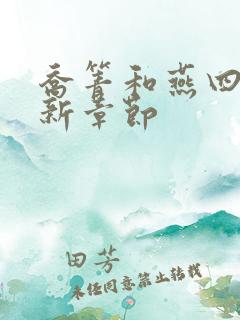 乔箐和燕四
新章节
田芳
未经同意禁止转载